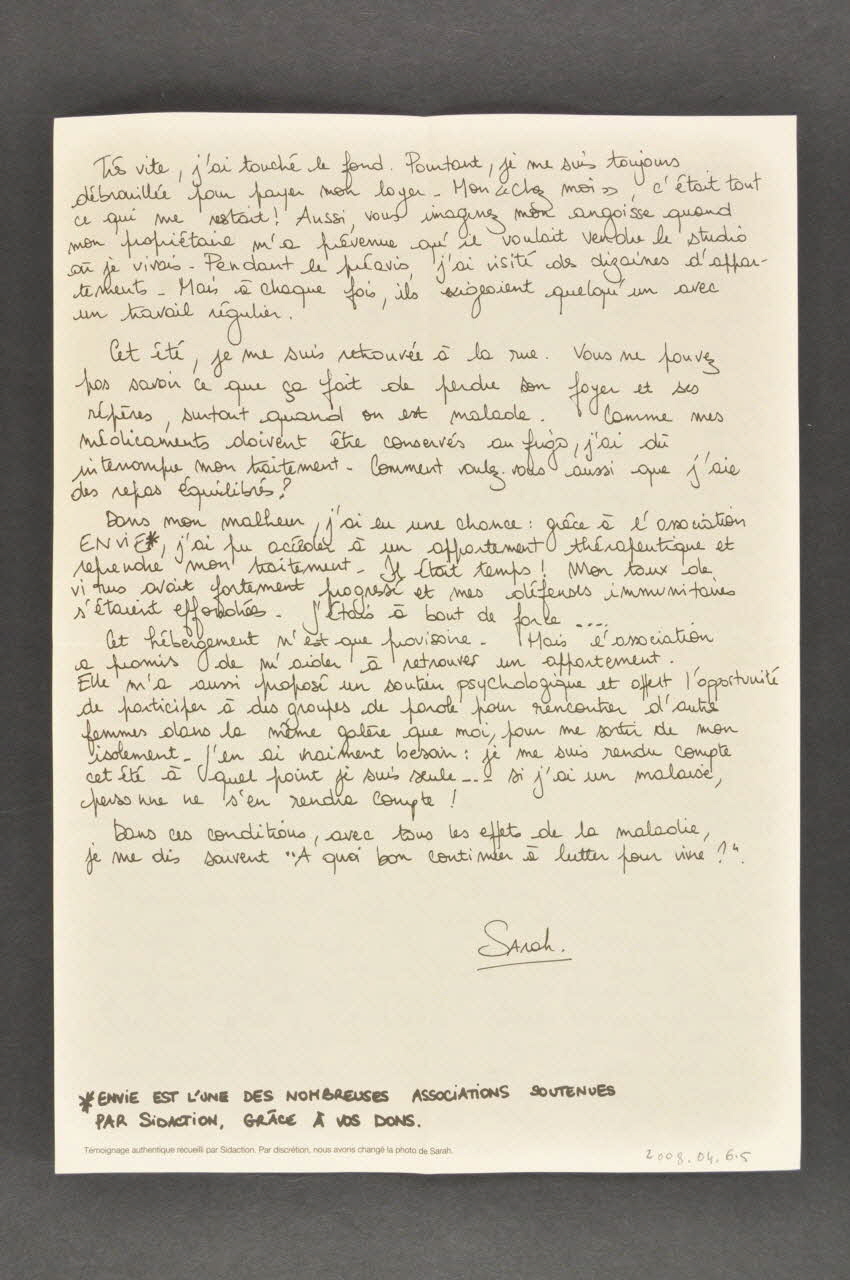 Très vite, j'ai touché le fond. Pourtant, je me suis toujours
débrouillée pour payer mon loyer - Mon « chez moi », c'était tout
ce qui me restait ! Aussi, vous imaginez mon angoisse quand
mon propriétaire m'a prévenue qu'il voulait vendre le studio
où je vivais - Pendant le préavis, j'ai visité des dizaines d'appar-
tements - Mais à chaque fois, ils exigeaient quelqu'un avec
un travail régulier.
Cet été, je me suis retrouvée à la rue. Vous ne pouvez
pas savoir ce que ça fait de perdre son foyer et ses
repères, surtout quand on est malade. Comme mes
médicaments doivent être conservés au frigo, j'ai dû
interrompre mon traitement - Comment voulez-vous aussi que j'aie
des repas équilibrés ?
Dans mon malheur, j'ai eu une chance : grâce à l'association
ENVIE*, j'ai pu accéder à un appartement thérapeutique et
reprendre mon traitement - Il était temps ! Mon taux de
virus avait fortement progressé et mes défenses immunitaires
s'étaient effondrées - J'étais à bout de force ....
Cet hébergement n'est que provisoire - Mais l'association
a promis de m'aider à retrouver un appartement.
Elle m'a aussi proposé un soutien psychologique et offert l'opportunité
de participer à des groupes de parole pour rencontrer d'autre
femmes dans la même galère que moi, pour me sortir de mon
isolement - J'en ai vraiment besoin : je me suis rendu compte
cet été à quel point je suis seule --- si j'ai un malaise,
personne ne s'en rendra compte !
Dans ces conditions, avec tous les effets de la maladie,
je me dis souvent "A quoi bon continuer à lutter pour vivre ?".
Sarah.
*ENVIE EST L'UNE DES NOMBREUSES ASSOCIATIONS SOUTENUES
PAR SIDACTION, GRÂCE À VOS DONS.
Témoignage authentique recueilli par Sidaction. Par discrétion, nous avons changé la photo de Sarah.
2008.04.6.5